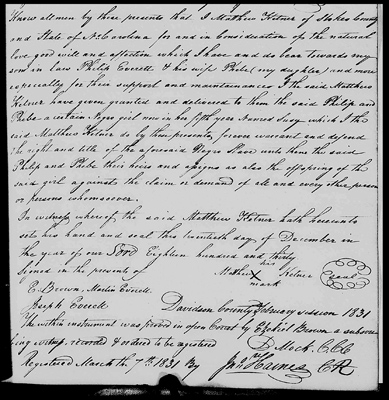 Know all men by these presents that I Mathew Ketner of Stokes County
and State of N. Carolina for and in Consideration of the natural
love good will and affection which I have and do bear towards my
son in law Philip Everett & his wife Phebe (my daughter) and more
especially for their support and maintainance I the said Matthew
Ketner have given granted and delivered to them the said Philip and
Phebe a certain Negro girl now in her fifth year Named Susy which I the
said Matthew Ketner do by these presents forever warrant and defend
the right and title of the aforesaid Negro Slave unto them the said
Philip and Phebe their heirs and assigns as also the offspring of the
said girl against the claim or demand of all and every other person
or persons whomsoever.
In witness whereof the said Matthew Ketner hath hereunto
set his hand and seal this twentieth day of December in
the year of our Lord Eighteen hundred and thirty
Signed in the presents of his
Mathew X Ketner (Seal)
mark
E. Brown, Martin Everett
Joseph Everett
Davidson County February session 1831
The within instrument was proved in open Court by Ezekiel Brown a subscri
bing witness. recorded & ordered to be registered
D Mock. C.C.C
Registered March the 7th 1831 By Jno Haines CR